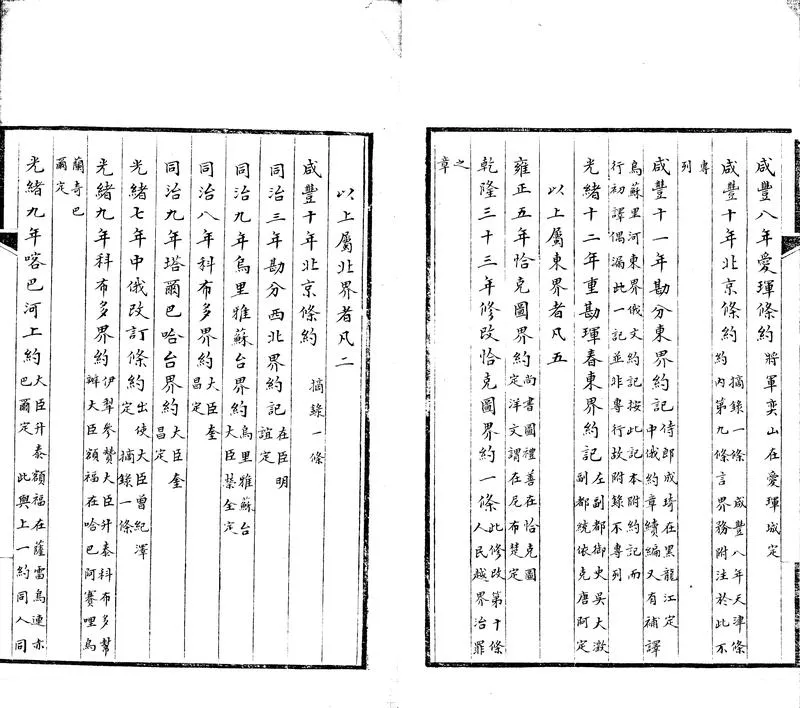 咸豐八年愛琿條約將軍奕山在愛琿城定
咸豐十年北京條約摘錄一條 咸豐八年天津條約內第九條言界務附注於此不
專列
咸豐十一年勘分東界約記侍郎成琦在黑龍江定中俄約章續編又有補譯
烏蘇里河東界俄文約記按此記本附約記而行初譯偶漏此一記並非專行故附錄不專列
光緒十二年重勘琿春東界約記左副都御史吳大澂副都統依克唐阿定
以上屬東界者凡五
雍正五年恰克圖界約尚書圖禮善在恰克圖定洋文謂在尼布楚定
乾隆三十三年修改恰克圖界約一條此修改第十條人民越界治罪
之章
以上屬北界者凡二
咸豐十年北京條約 摘錄一條
同治三年勘分西北界約記在臣明誼定
同治九年烏里雅蘇台界約烏里雅蘇台大臣榮全定
同治八年科布多界約大臣奎昌定
同治九年塔爾巴哈台界約大臣奎昌定
光緒七年中俄改訂條約出使大臣曾紀澤定 摘錄一條
光緒九年科布多界約伊犂參贊大臣升泰科布多幫辦大臣額福在哈巴阿賽哩烏
蘭奇巴爾定
光緒九年喀巴河上約大臣升泰額福在薩雷烏連亦巴爾定 此與上一約同人同